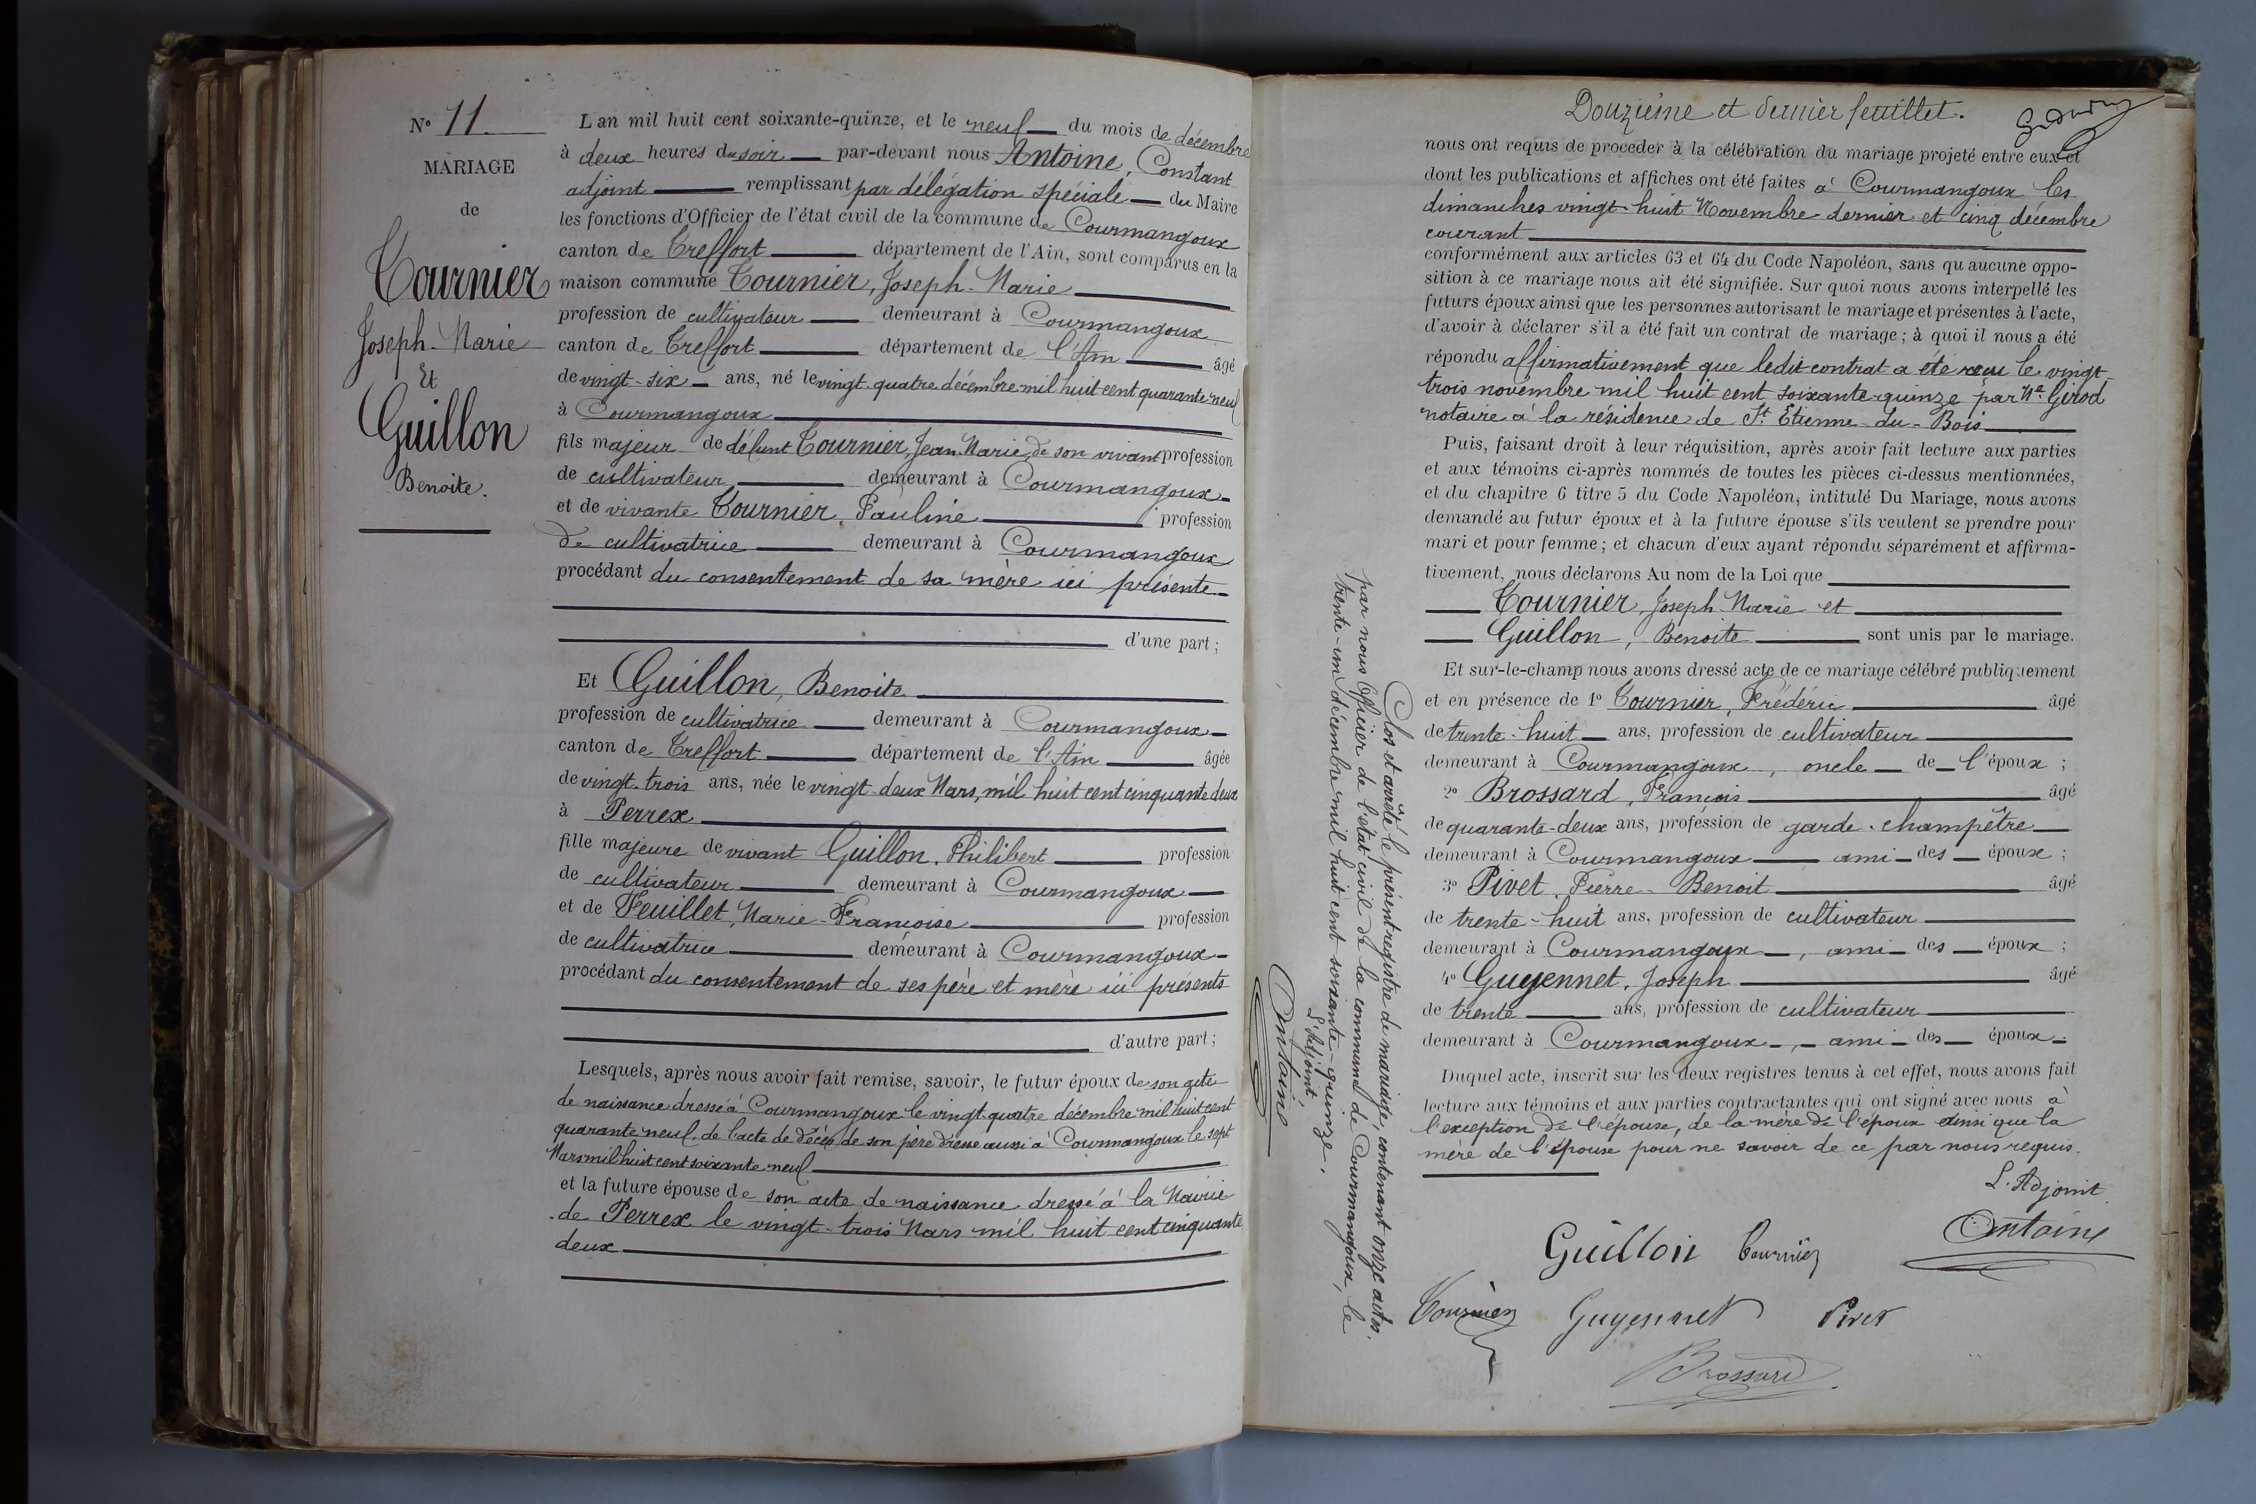 N° 11
MARIAGE
de
Tournier
Joseph-Marie
Et
Guillon
Benoite.
L'an mil huit cent soixante-quinze, et le neuf du mois de décembre
à deux heures du soir par-devant nous Antoine, Constant
adjoint remplissant par délégation spéciale du Maire
les fonctions d'Officier de l'état civil de la commune de Courmangoux
canton de Treffort département de l'Ain, sont comparus en la
maison commune Tournier, Joseph-Marie
profession de cultivateur demeurant à Courmangoux
canton de Treffort département de l'Ain âgé
de vingt-six ans, né le vingt-quatre décembre mil huit cent quarante-neuf
à Courmangoux
fils majeur de défunt Tournier, Jean-Marie, de son vivant profession
de cultivateur demeurant à Courmangoux
et de vivante Tournier, Pauline profession
de cultivatrice demeurant à Courmangoux
procédant du consentement de sa mère ici présente
d'une part ;
Et Guillon, Benoite
profession de cultivatrice demeurant à Courmangoux
canton de Treffort département de l'Ain âgée
de vingt-trois ans, née le vingt-deux Mars, mil huit cent cinquante deux
à Perrex
fille majeure de vivant Guillon, Philibert profession
de cultivateur demeurant à Courmangoux
et de Feuillet, Marie-Françoise profession
de cultivatrice demeurant à Courmangoux
procédant du consentement de ses père et mère ici présents
d'autre part ;
Lesquels, après nous avoir fait remise, savoir, le futur époux de son acte
de naissance dressé à Courmangoux le vingt quatre décembre mil huit cent
quarante neuf, de l'acte de décès de son père dressé aussi à Courmangoux le sept
Mars mil huit cent soixante neuf
et la future épouse de son acte de naissance dressé à la Mairie
de Perrex le vingt-trois Mars mil huit cent cinquante
deux
Douzième et dernier feuillet.
nous ont requis de procéder à la célébration du mariage projeté entre eux et
dont les publications et affiches ont été faites à Courmangoux les
dimanches vingt-huit Novembre dernier et cinq décembre
courant
conformément aux articles 63 et 64 du Code Napoléon, sans qu'aucune oppo-
sition à ce mariage nous ait été signifiée. Sur quoi nous avons interpellé les
futurs époux ainsi que les personnes autorisant le mariage et présentes à l'acte,
d'avoir à déclarer s'il a été fait un contrat de mariage ; à quoi il nous a été
répondu affirmativement que ledit contrat a été reçu le vingt-
trois novembre mil huit cent soixante-quinze par Me Girod
notaire à la résidence de St Etienne-du-Bois
Puis, faisant droit à leur réquisition, après avoir fait lecture aux parties
et aux témoins ci-après nommés de toutes les pièces ci-dessus mentionnées,
et du chapitre 6 titre 5 du Code Napoléon, intitulé Du Mariage, nous avons
demandé au futur époux et à la future épouse s'ils veulent se prendre pour
mari et pour femme ; et chacun d'eux ayant répondu séparément et affirma-
tivement, nous déclarons Au nom de la Loi que
Tournier, Joseph-Marie et
Guillon, Benoite sont unis par le mariage.
Et sur-le-champ nous avons dressé acte de ce mariage célébré publiquement
et en présence de 1° Tournier, Frédéric âgé
de trente-huit ans, profession de cultivateur
demeurant à Courmangoux, oncle de l'époux ;
2° Brossard, François âgé
de quarante-deux ans, profession de garde-champêtre
demeurant à Courmangoux ami des époux ;
3° Pivet, Pierre-Benoit âgé
de trente-huit ans, profession de cultivateur
demeurant à Courmangoux, ami des époux ;
4° Guyennet, Joseph âgé
de trente ans, profession de cultivateur
demeurant à Courmangoux, ami des époux
Duquel acte, inscrit sur les deux registres tenus à cet effet, nous avons fait
lecture aux témoins et aux parties contractantes qui ont signé avec nous à
l'exception de l'épouse, de la mère de l'époux ainsi que la
mère de l'épouse pour ne savoir de ce par nous requis.
L'Adjoint
Antoine
Guillon Tournier
Tournier Guyennet Pivet
Brossard
Clos et arrêté le présent registre de mariage, contenant onze actes,
par nous Officier de l'état civil de la commune de Courmangoux, le
trente-un décembre mil huit cent soixante-quinze.
L'Adjoint,
Antoine